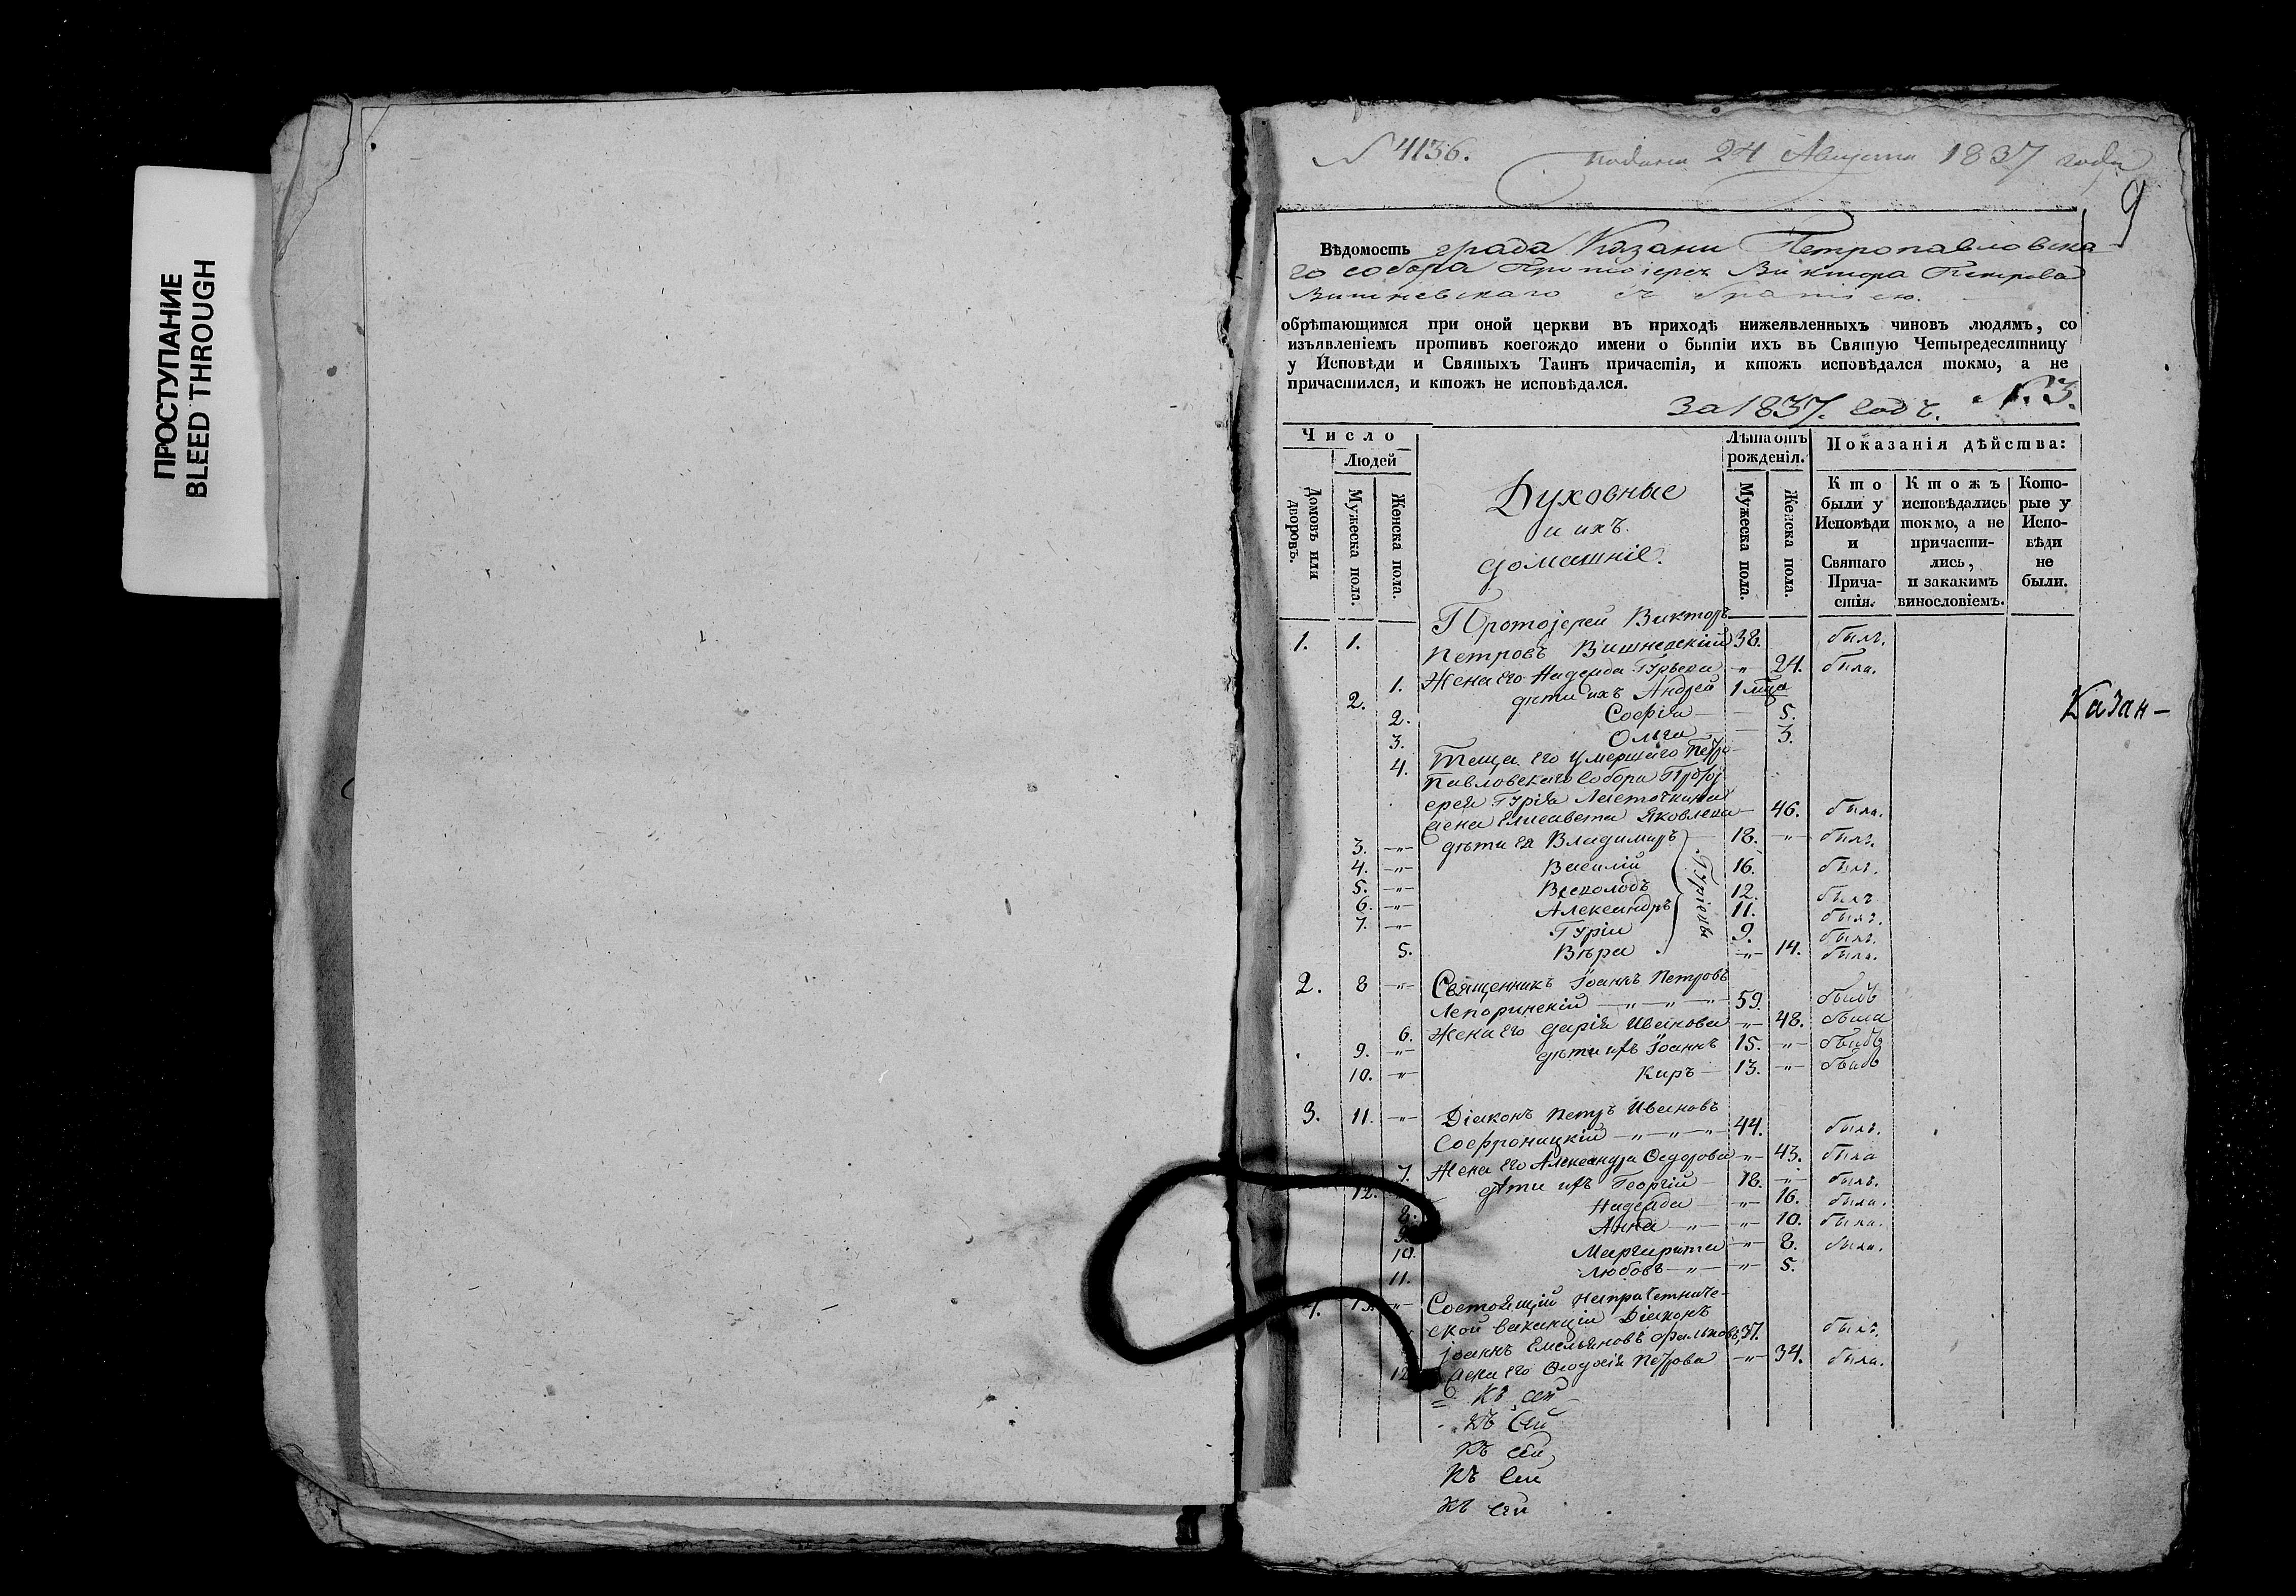 ПРОСТУПАНИЕ
BLEED THROUGH
N 4136. подана 24 Августа 1837 года
9
Вѣдомость града Казани Петропавловска-
го собора Протоіерея Виктора Петрова
Вишневскаго съ братіею.
обрѣтающимся при оной церкви въ приходѣ нижеявленныхъ чиновъ людямъ, со
изъявленіемъ противъ коегождо имени о бытіи ихъ въ Святую Четыредесятницу
у Исповѣди и Святыхъ Таинъ причастія, и ктожъ исповѣдался токмо, а не
причастился, и ктожъ не исповѣдался.
За 1837. годъ. N. 3.
Число
Людей
Домовъ или дворовъ.
Мужеска пола.
Женска пола.
Духовные
и ихъ
домашніе.
Лѣта отъ рожденія.
Мужеска пола.
Женска пола.
Показанія дѣйства:
Кто были у Исповѣди и Святаго Прича-стія.
Ктожъ исповѣдались токмо, а не причасти-лись, и закакимъ винословіемъ.
Кото-рые у Испо-вѣди не были.
Протоіерей Викторъ
1. 1. Петровъ Вишневскій 38. былъ.
1. Жена его Надежда Гурьева -"- 24. была.
2. дѣти ихъ Андрей 1 мца
2. Софія — 5.
3. Ольга — 3.
4. Теща его умершаго Петро-
Павловскаго Собора Протоі-
ерея Гурія Ласточкина
жена Елисавета Яковлева — 46. была.
3. -"- дѣти ея Владимиръ — 18. -"- былъ.
4. -"- Василій 16. былъ.
5. -"- Всеволодъ 12. былъ
6. -"- Александръ 11. былъ.
7. -"- Гурій 9. былъ.
5. Вѣра -"- 14. была.
Гуріевы
2. 8 -"- Священникъ Іоаннъ Петровъ
Лепоринскій -"-"-"- 59. былъ
6. Жена его Дарія Иванова -"- 48. была
9. -"- дѣти ихъ Іоаннъ 15. -"- былъ
10. -"- Киръ — 13. -"- былъ
3. 11. -"- Діаконъ Петръ Ивановъ
Софроницкій -"-"-"- 44. былъ.
7. Жена его Александра Ѳедорова -"- 43. была
12. дѣти ихъ Георгій — 18. -"- былъ.
8. Надежда -"- 16. была.
9. Анна -"- -"- 10. была.
10. Маргарита -"- 8. была.
11. Любовь -"- -"- 5.
13. -"- Состоящій на причетниче-
ской вакансіи Діаконъ
Іоаннъ Емельяновъ 37. былъ.
12 жена его Ѳеодосія Петрова -"- 34. была.
Къ сей
Къ сей
Къ сей
Къ сей
Къ сей
Казан-